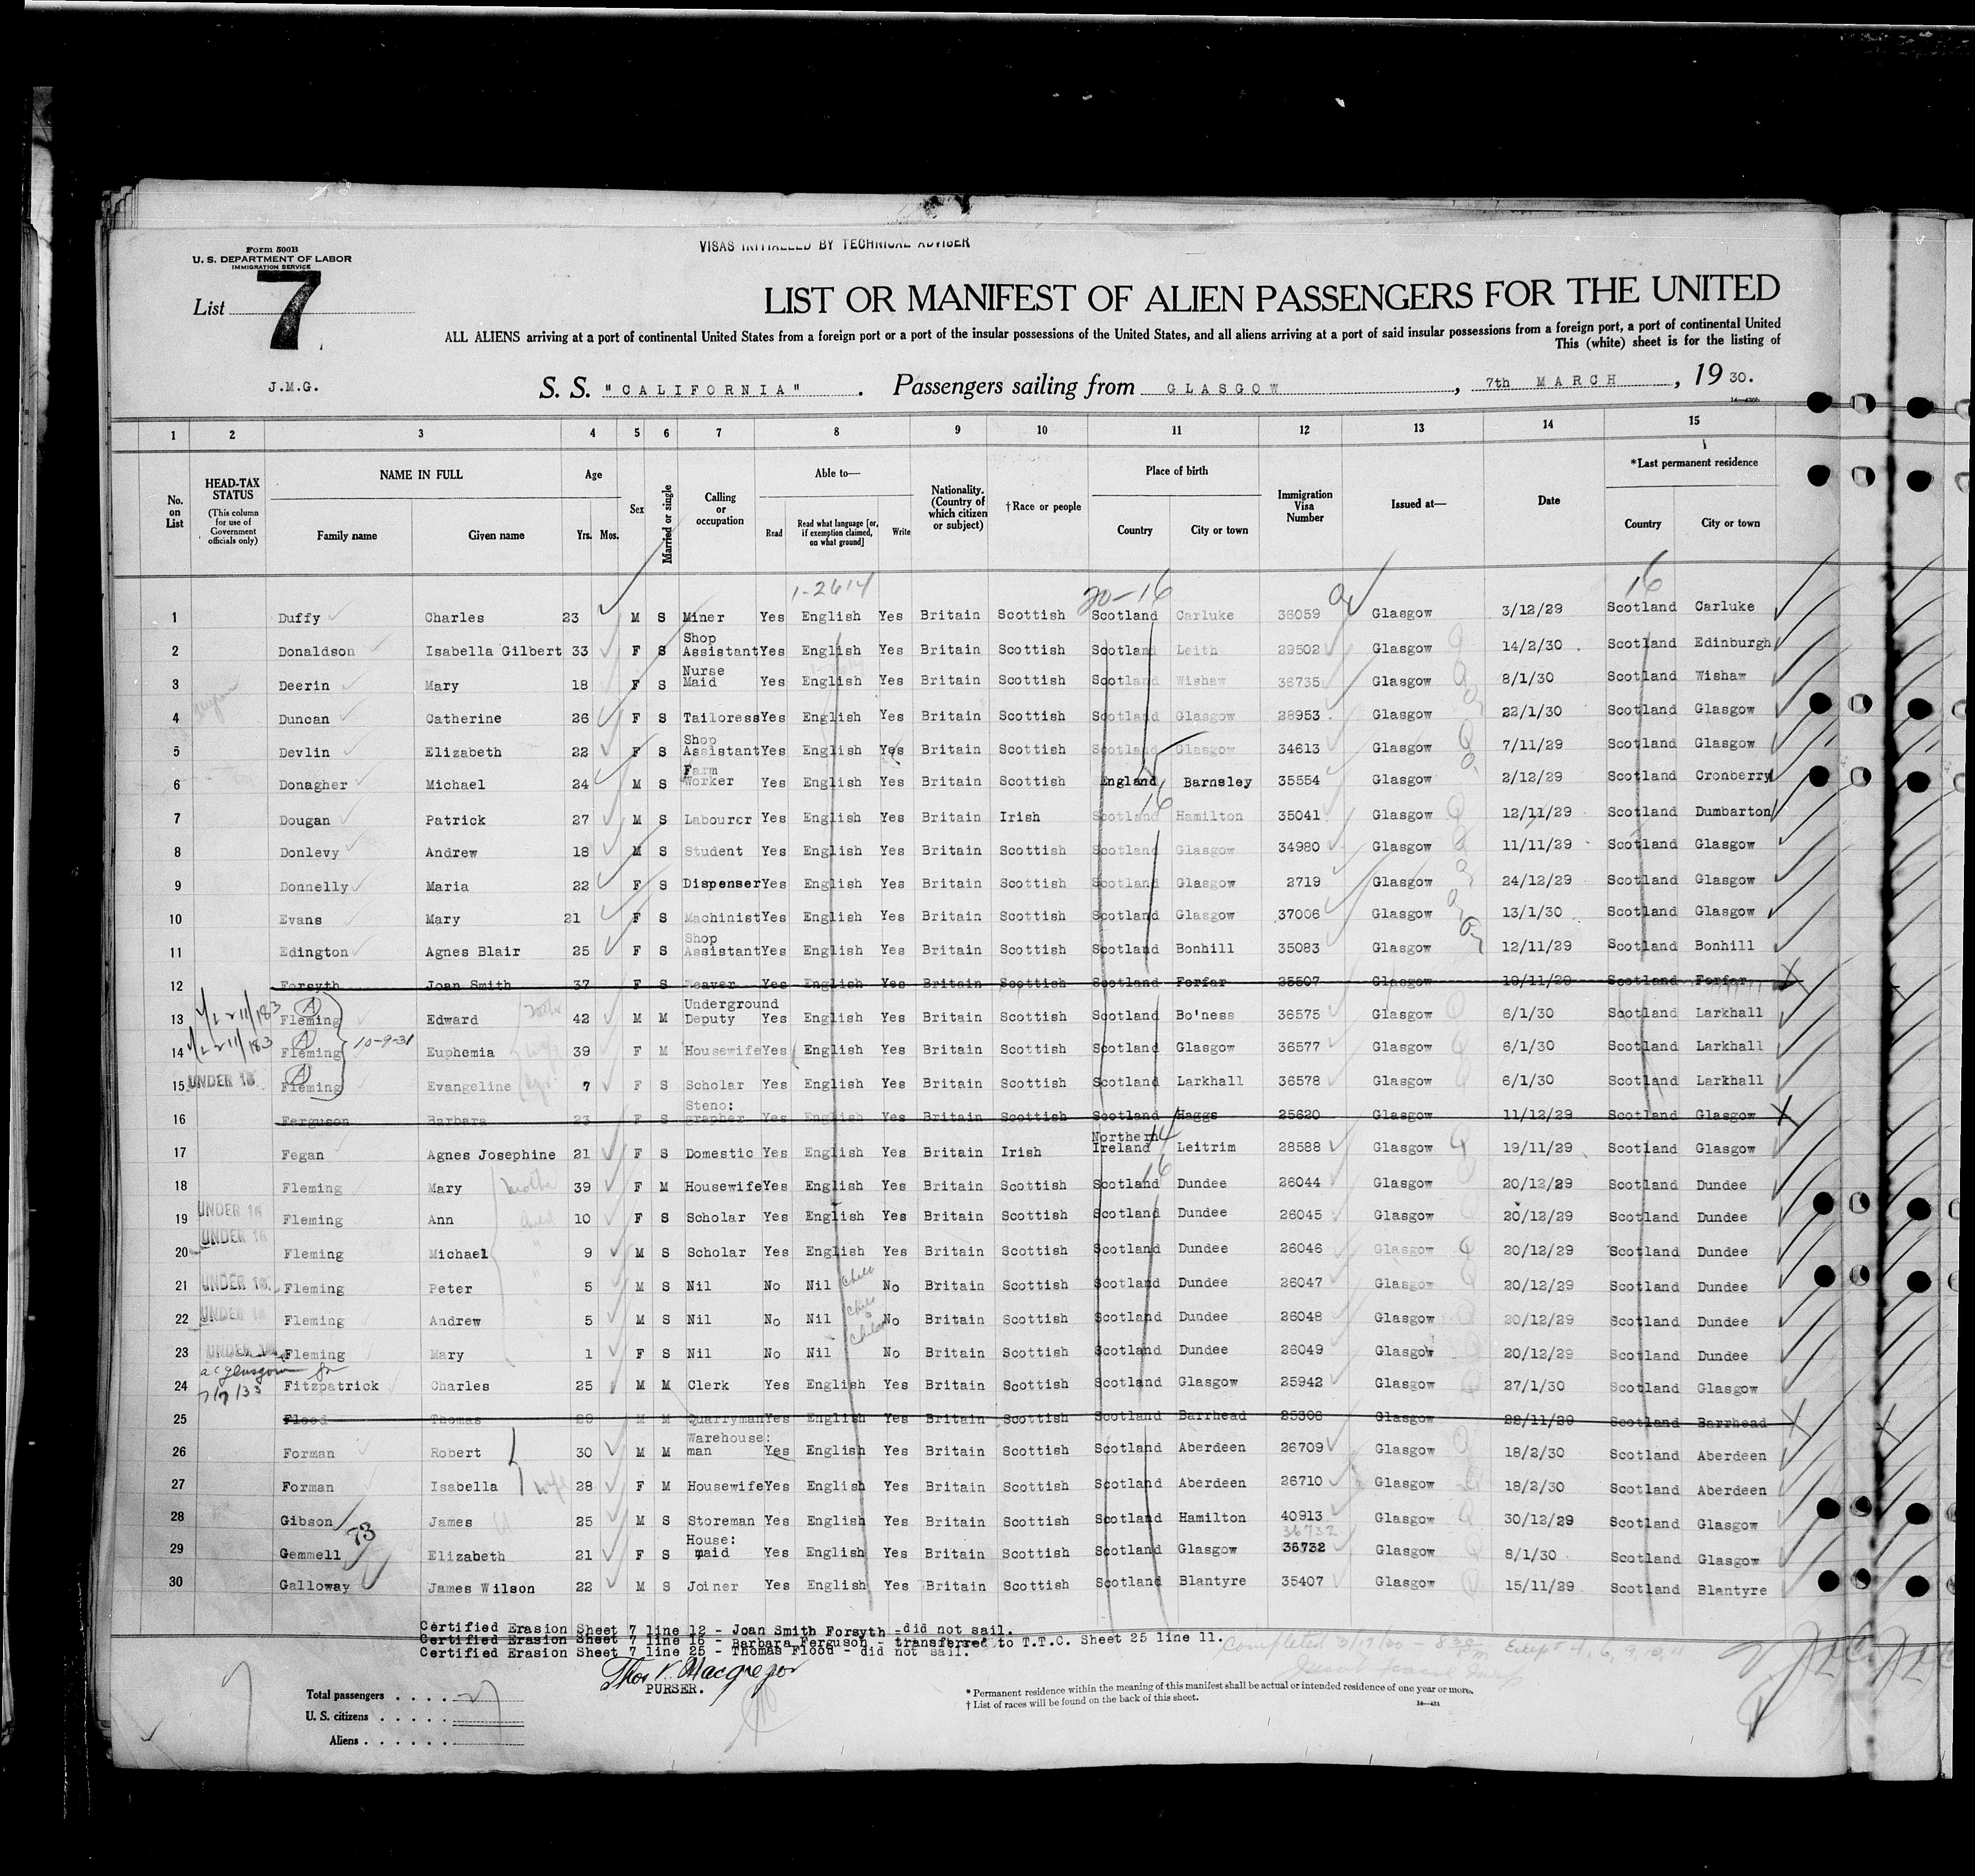 VISAS INITIALLED BY TECHNICAL ADVISER
Form 500B
U. S. DEPARTMENT OF LABOR
IMMIGRATION SERVICE
List 7
LIST OR MANIFEST OF ALIEN PASSENGERS FOR THE UNITED
ALL ALIENS arriving at a port of continental United States from a foreign port or a port of the insular possessions of the United States, and all aliens arriving at a port of said insular possessions from a foreign port, a port of continental United
This (white) sheet is for the listing of
J.M.G. S. S. "CALIFORNIA". Passengers sailing from GLASGOW, 7th MARCH, 19 30.
1 2 3 4 5 6 7 8 9 10 11 12 13 14 15
No. on List
HEAD-TAX STATUS (This column for use of Government officials only)
NAME IN FULL Family name Given name
Age Yrs. Mos.
Sex
Married or single
Calling or occupation
Able to— Read Read what language [or, if exemption claimed, on what ground] Write
Nationality. (Country of which citizen or subject)
†Race or people
Place of birth Country City or town
Immigration Visa Number
Issued at—
Date
*Last permanent residence Country City or town
1-2614 20-16 16
1 Duffy Charles 23 M S Miner Yes English Yes Britain Scottish Scotland Carluke 36059 Glasgow 3/12/29 Scotland Carluke
2 Donaldson Isabella Gilbert 33 F S Shop Assistant Yes English Yes Britain Scottish Scotland Leith 29502 Glasgow 14/2/30 Scotland Edinburgh
3 Deerin Mary 18 F S Nurse Maid Yes English Yes Britain Scottish Scotland Wishaw 36735 Glasgow 8/1/30 Scotland Wishaw
4 Duncan Catherine 26 F S Tailoress Yes English Yes Britain Scottish Scotland Glasgow 28953 Glasgow 22/1/30 Scotland Glasgow
5 Devlin Elizabeth 22 F S Shop Assistant Yes English Yes Britain Scottish Scotland Glasgow 34613 Glasgow 7/11/29 Scotland Glasgow
6 Donagher Michael 24 M S Farm Worker Yes English Yes Britain Scottish England Barnsley 35554 Glasgow 2/12/29 Scotland Cronberry
16
7 Dougan Patrick 27 M S Labourer Yes English Yes Britain Irish Scotland Hamilton 35041 Glasgow 12/11/29 Scotland Dumbarton
8 Donlevy Andrew 18 M S Student Yes English Yes Britain Scottish Scotland Glasgow 34980 Glasgow 11/11/29 Scotland Glasgow
9 Donnelly Maria 22 F S Dispenser Yes English Yes Britain Scottish Scotland Glasgow 2719 Glasgow 24/12/29 Scotland Glasgow
10 Evans Mary 21 F S Machinist Yes English Yes Britain Scottish Scotland Glasgow 37006 Glasgow 13/1/30 Scotland Glasgow
11 Edington Agnes Blair 25 F S Shop Assistant Yes English Yes Britain Scottish Scotland Bonhill 35083 Glasgow 12/11/29 Scotland Bonhill
12 Forsyth Joan Smith 37 F S Weaver Yes English Yes Britain Scottish Scotland Forfar 25507 Glasgow 19/11/29 Scotland Forfar
13 Fleming Edward 42 M M Underground Deputy Yes English Yes Britain Scottish Scotland Bo'ness 36575 Glasgow 6/1/30 Scotland Larkhall
14 Fleming 10-9-31 Euphemia wife 39 F M Housewife Yes English Yes Britain Scottish Scotland Glasgow 36577 Glasgow 6/1/30 Scotland Larkhall
15 UNDER 16 Fleming Evangeline 7 F S Scholar Yes English Yes Britain Scottish Scotland Larkhall 36578 Glasgow 6/1/30 Scotland Larkhall
16 Ferguson Barbara 23 F S Steno: grapher Yes English Yes Britain Scottish Scotland Haggs 25620 Glasgow 11/12/29 Scotland Glasgow
17 Fegan Agnes Josephine 21 F S Domestic Yes English Yes Britain Irish Northern Ireland 14 Leitrim 28588 Glasgow 19/11/29 Scotland Glasgow
16
18 Fleming Mary mother 39 F M Housewife Yes English Yes Britain Scottish Scotland Dundee 26044 Glasgow 20/12/29 Scotland Dundee
19 UNDER 16 Fleming Ann child 10 F S Scholar Yes English Yes Britain Scottish Scotland Dundee 26045 Glasgow 20/12/29 Scotland Dundee
20 UNDER 16 Fleming Michael 9 M S Scholar Yes English Yes Britain Scottish Scotland Dundee 26046 Glasgow 20/12/29 Scotland Dundee
21 UNDER 16 Fleming Peter 5 M S Nil No Nil child No Britain Scottish Scotland Dundee 26047 Glasgow 20/12/29 Scotland Dundee
22 UNDER 16 Fleming Andrew 5 M S Nil No Nil child No Britain Scottish Scotland Dundee 26048 Glasgow 20/12/29 Scotland Dundee
23 UNDER 16 Fleming Mary 1 F S Nil No Nil child No Britain Scottish Scotland Dundee 26049 Glasgow 20/12/29 Scotland Dundee
24 Fitzpatrick Charles 25 M M Clerk Yes English Yes Britain Scottish Scotland Glasgow 25942 Glasgow 27/1/30 Scotland Glasgow
25 Flood Thomas 29 M M Quarryman Yes English Yes Britain Scottish Scotland Barrhead 25306 Glasgow 22/11/29 Scotland Barrhead
26 Forman Robert 30 M M Warehouse: man Yes English Yes Britain Scottish Scotland Aberdeen 26709 Glasgow 18/2/30 Scotland Aberdeen
27 Forman Isabella wife 28 F M Housewife Yes English Yes Britain Scottish Scotland Aberdeen 26710 Glasgow 18/2/30 Scotland Aberdeen
28 Gibson James 25 M S Storeman Yes English Yes Britain Scottish Scotland Hamilton 40913 Glasgow 30/12/29 Scotland Glasgow
73 36732
29 Gemmell Elizabeth 21 F S House: maid Yes English Yes Britain Scottish Scotland Glasgow 36732 Glasgow 8/1/30 Scotland Glasgow
30 Galloway James Wilson 22 M S Joiner Yes English Yes Britain Scottish Scotland Blantyre 35407 Glasgow 15/11/29 Scotland Blantyre
Certified Erasion Sheet 7 line 12 - Joan Smith Forsyth - did not sail.
Certified Erasion Sheet 7 line 16 - Barbara Ferguson - transferred to T.T.C. Sheet 25 line 11.
Certified Erasion Sheet 7 line 25 - Thomas Flood - did not sail.
Thos V. Macgregor
PURSER.
Total passengers
U. S. citizens
Aliens
* Permanent residence within the meaning of this manifest shall be actual or intended residence of one year or more.
† List of races will be found on the back of this sheet.